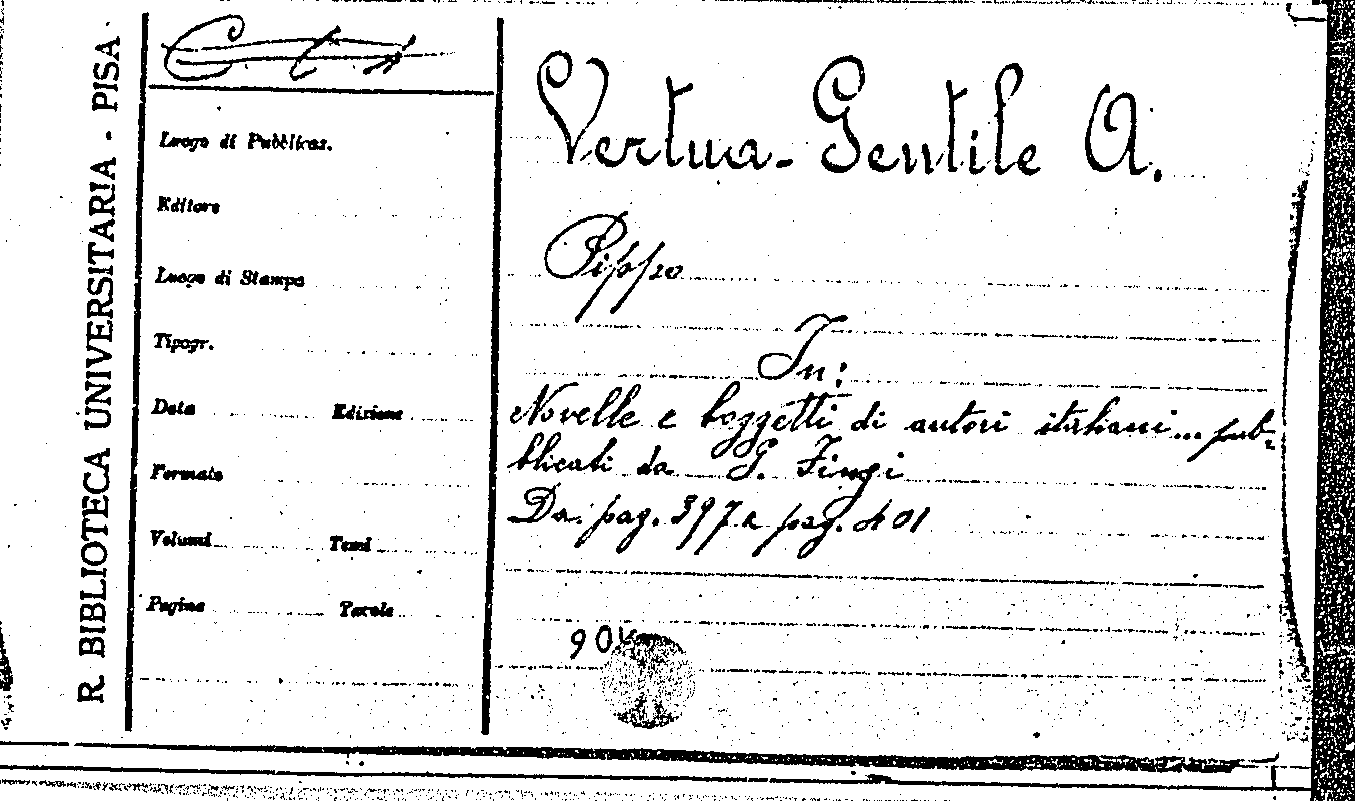 R. BIBLIOTECA UNIVERSITARIA - PISA
Luogo di Pubblicaz.
Editore
Luogo di Stampa
Tipogr.
Data Edizione
Formato
Volumi Tomi
Pagine Tavole
Vertua-Gentile A.
Pippo
In:
Novelle e bozzetti di autori italiani... pub-
blicati da G. Finzi
Da pag. 397 a pag. 401